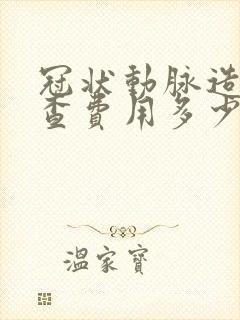 冠状動脉造
查費用多少
溫家寶